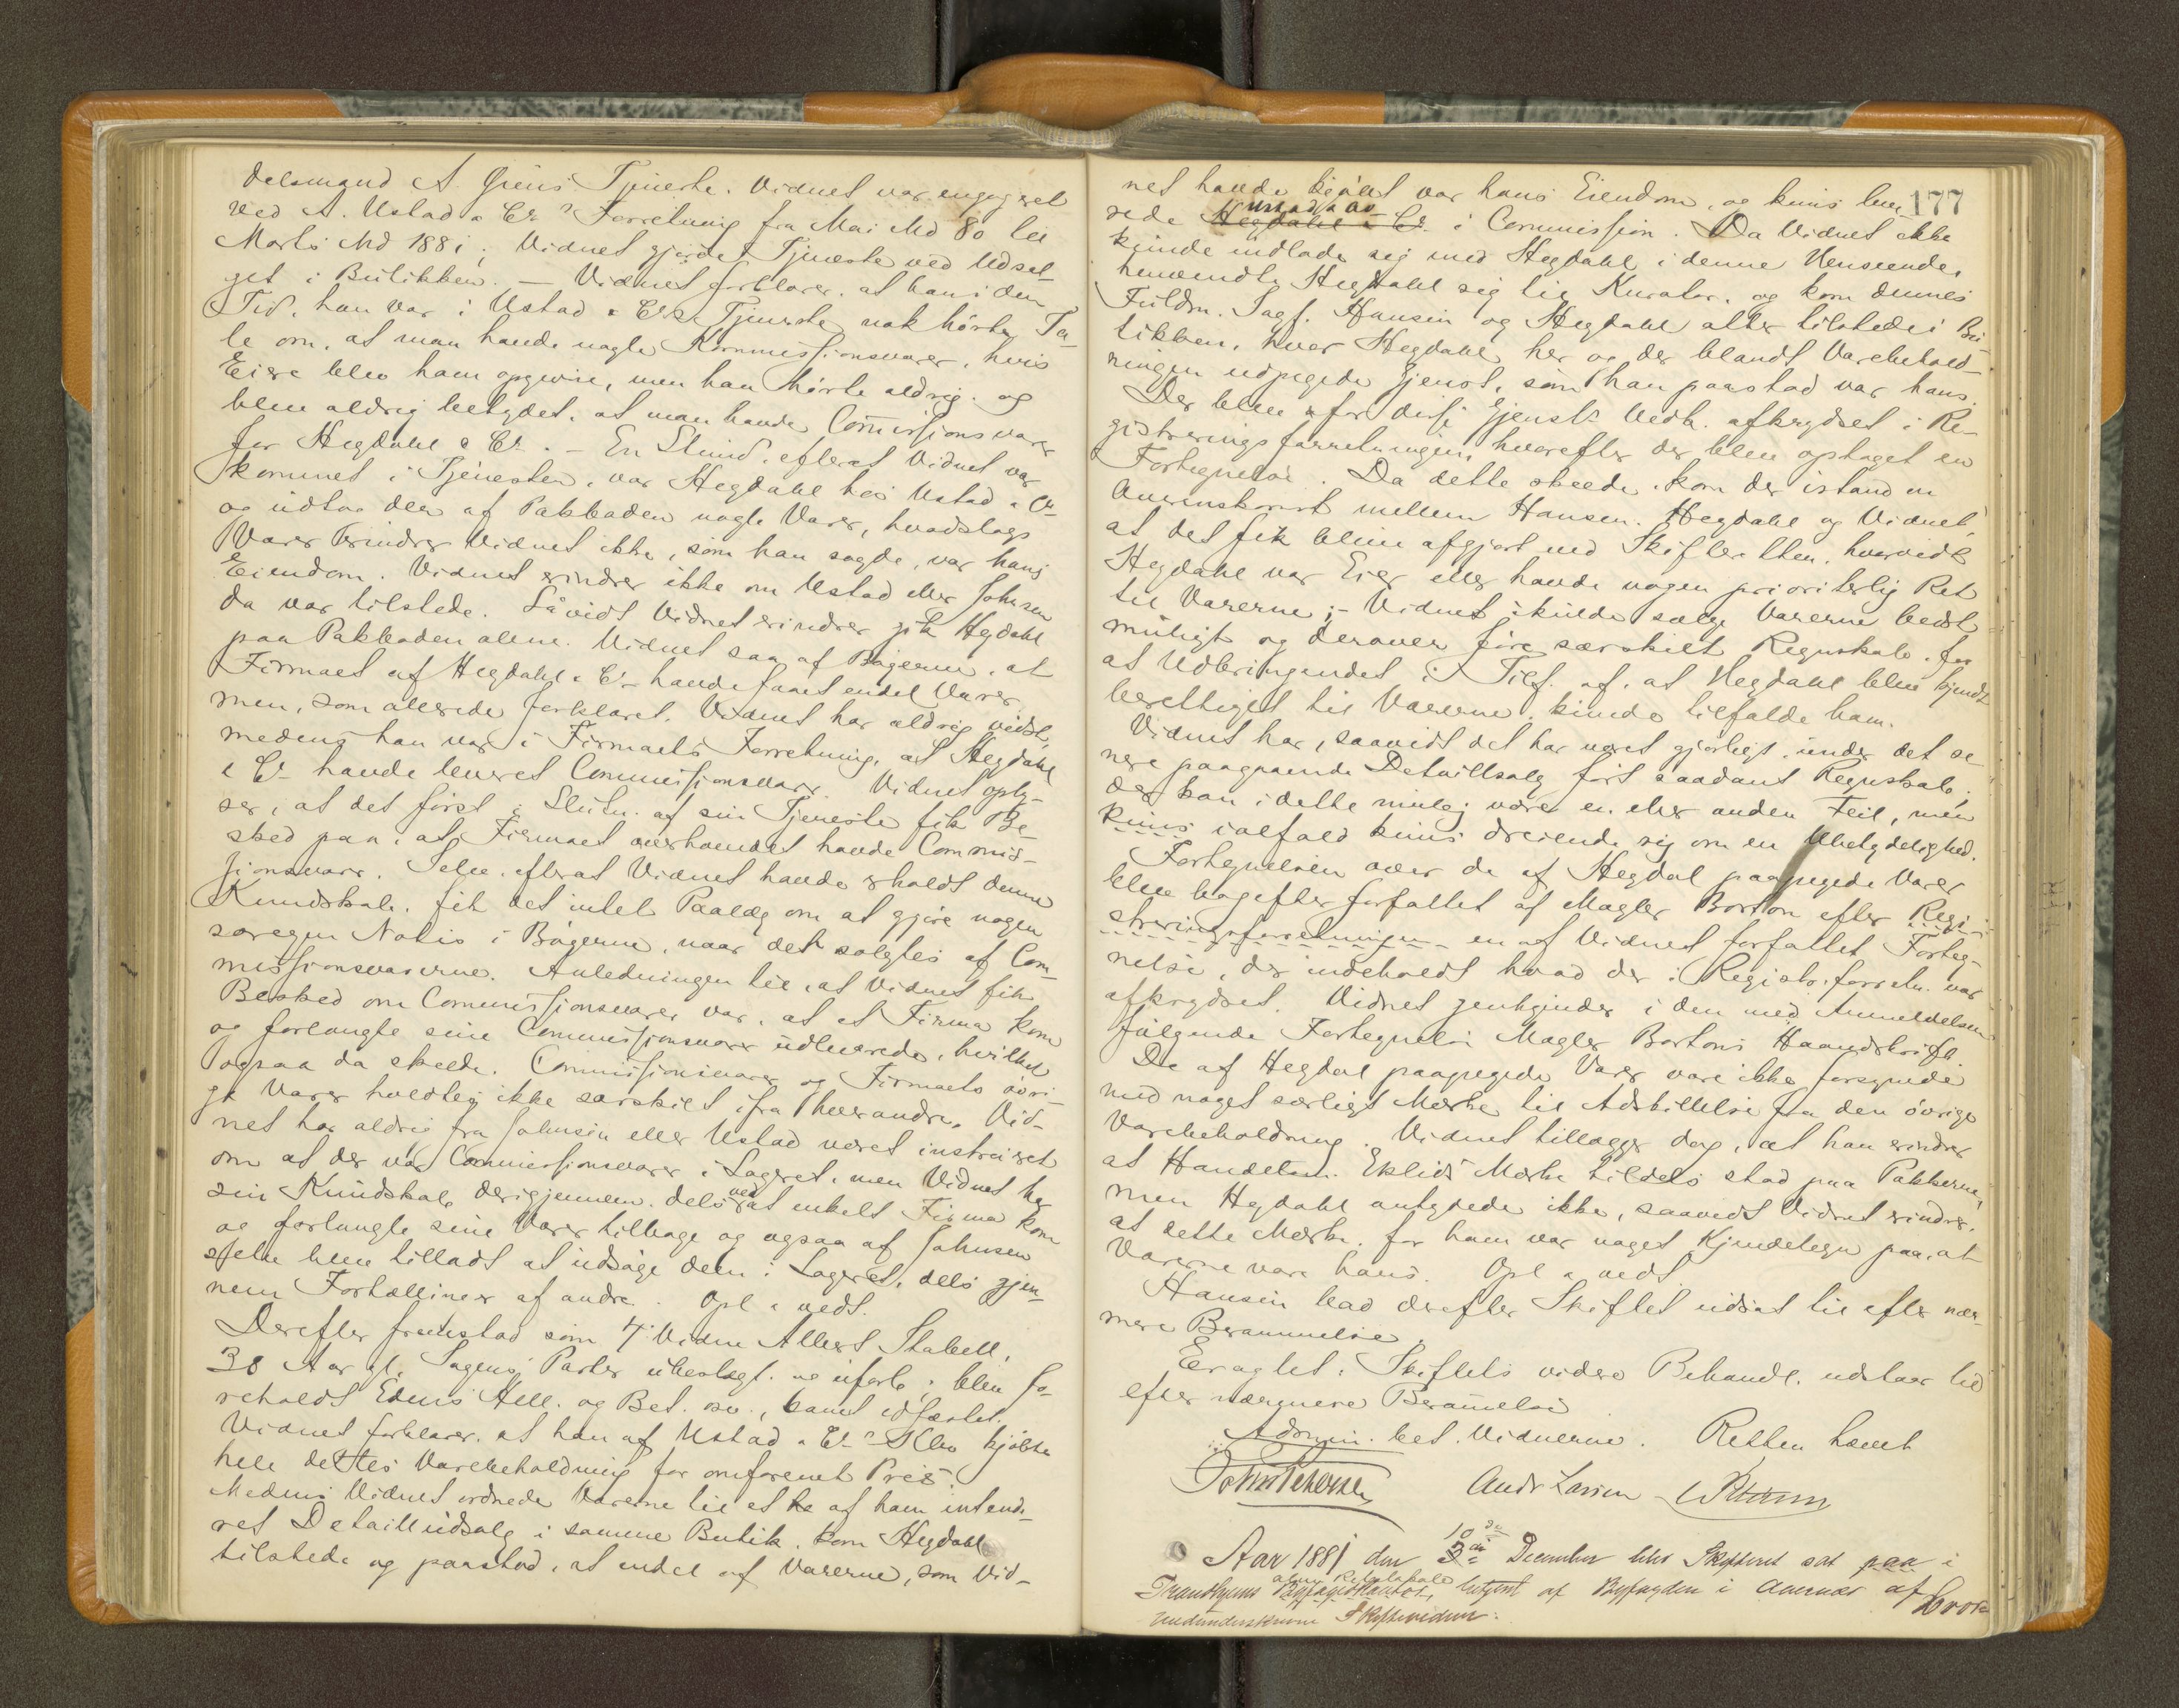 delsmand A. Griens Tjeneste. Vidnet var engageret
ved A. Ustad & Co's Forretning fra Mai Md 80 til
Marts Md 1881; Vidnet gjorde Tjeneste ved Udsal-
get i Butikken. — Vidnet forklarer, at han i den
Tid, han var i Ustad & Co's Tjeneste nok hørte Ta-
le om, at man havde nogle Kommissionsvarer, hvis
Eiere blev ham opgivne, men han hørte aldrig og
blev aldrig betydet, at man havde Commissionsvarer
for Hegdahl & Co. – En Stund efterat Vidnet var
kommet i Tjenesten, var Hegdahl hos Ustad & Co
og udtog der af Pakboden nogle Varer, hvadslags
Varer erindrer Vidnet ikke, som han sagde, var hans
Eiendom. Vidnet erindrer ikke om Ustad eller Johnsen
da var tilstede. Såvidt Vidnet erindrer gik Hegdahl
paa Pakboden alene. Vidnet saa af Bøgerne, at
Firmaet af Hegdahl & Co havde faaet endel Varer,
men, som allerede forklaret, Vidnet har aldrig vidst,
medens han var i Firmaets Forretning, at Hegdahl
& Co havde leveret Commissionsvarer. Vidnet oply-
ser, at det først i Slutn. af sin Tjeneste fik Be-
sked paa, at Firmaet overhovedet havde Commis-
sionsvarer. Selv efterat Vidnet havde erholdt denne
Kundskab, fik det intet Paalæg om at gjøre nogen
særegen Notis i Bøgerne, naar det solgtes af Com-
missionsvarerne. Anledningen til, at Vidnet fik
Besked om Commissionsvarer var, at et Firma kom
og forlangte sine Commissionsvarer udleverede, hvilket
ogsaa da skede. Commissionsvarer og Firmaets øvri-
ge Varer holdtes ikke særskilt ifra hverandre. Vid-
net har aldrig fra Johnsen eller Ustad været instrueret
om at der var Commissionsvarer i Lageret, men Vidnet har
sin Kundskab derigjennem dels ved at enkelt Firma kom
og forlangte sine Varer tilbage og ogsaa af Johnsen
selv blev tilladt at udsøge dem i Lageret, dels gjen-
nem Fortællinger af andre. Opl. & vedt.
Derefter fremstod som 4. Vidne Albert Stabell,
38 Aar gl. Sagens Parter ubeslægt. og ubesv.; blev fo-
reholdt Edens Hell. og Bet. osv., samt edfæstet.
Vidnet forklarer, at han af Ustad & Co's Konkursbo kjøbte
hele dettes Varebeholdning for omforenet Pris.
Medens Vidnet ordnede Varerne til et af ham intende-
ret Detailudsalg i samme Butik, kom Hegdahl
tilstede og paastod, at endel af Varerne, som Vid-
net havde kjøbt var hans Eiendom, og kuns leve-
177
Ustad & Co
rede Hegdahl & Co. i Commission. Da Vidnet ikke
kunde indlade sig med Hegdahl i denne Henseende,
henvendte Hegdahl sig til Kurator, og kom dennes
Fuldm. Sagf. Hansen og Hegdahl atter tilstede i Bu-
tikken, hvor Hegdahl her og der blandt Varebehold-
ningen udpegede Gjenst. som han paastod var hans.
Der blev for disse Gjenst's Vedk. afkrydset i Re-
gistreringsforretningen, hvorefter der blev optaget en
Fortegnelse. Da dette skede, kom der istand en
Overenskomst mellem Hansen, Hegdahl og Vidnet,
at det fik blive afgjort ved Skifteretten, hvorvidt
Hegdahl var Eier eller havde nogen prioriterlig Ret
til Varerne; – Vidnet skulde sælge Varerne bedst-
muligt og derover føre særskilt Regnskab, for
at Udbringendet i Tilf. af, at Hegdahl blev kjendt
berettiget til Varerne, kunde tilfalde ham.
Vidnet har, saavidt det har været gjørligt under det se-
nere paagaaende Detailsalg ført saadant Regnskab;
der kan i dette mulig være en eller anden Feil, men
kuns ialfald kuns dreiende sig om en Ubetydelighed.
Fortegnelsen over de af Hegdal paapegede Varer
blev bagefter forfattet af Mægler Borton efter Regi-
streringsforretningen en af Vidnet forfattet Forteg-
nelse, der indeholdt hvad der i Registr.forretn. var
afkrydset. Vidnet gjenkjender i den med Anmeldelsen
følgende Fortegnelse Mægler Bortons Haandskrift.
De af Hegdal paapegede Varer vare ikke forsynede
med noget særligt Mærke til Adskillelse fra den øvrige
Varebeholdning. Vidnet tillægger dog, at han erindrer
at Handelsm. Eklids Mærke tildels stod paa Pakkerne,
men Hegdahl antydede ikke, saavidt Vidnet erindrer,
at dette Mærke for ham var noget Kjendetegn paa, at
Varerne vare hans. Opl. & vedt.
Hansen bad derefter Skiftet udsat til efter nær-
mere Berammelse.
Eragtet: Skiftets videre Behandl. udstaar til
efter nærmere Berammelse
Admin. bet. Vidnerne. Retten hævet
Andr Larsen
Aar 1881 den 3die 10de December blev Skifteret sat paa i
Trondhjems Byfogedkontor, alm. Retslokale betjent af Byfogden i Overvær af
undertegnede Skiftevidner: